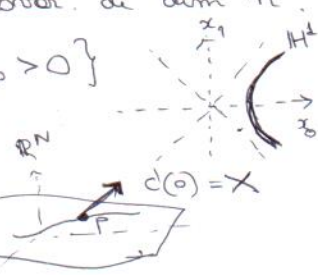 de dim n.
x₁
H¹
> 0 }
x₀
ℝᴺ
c'(0) = X
P